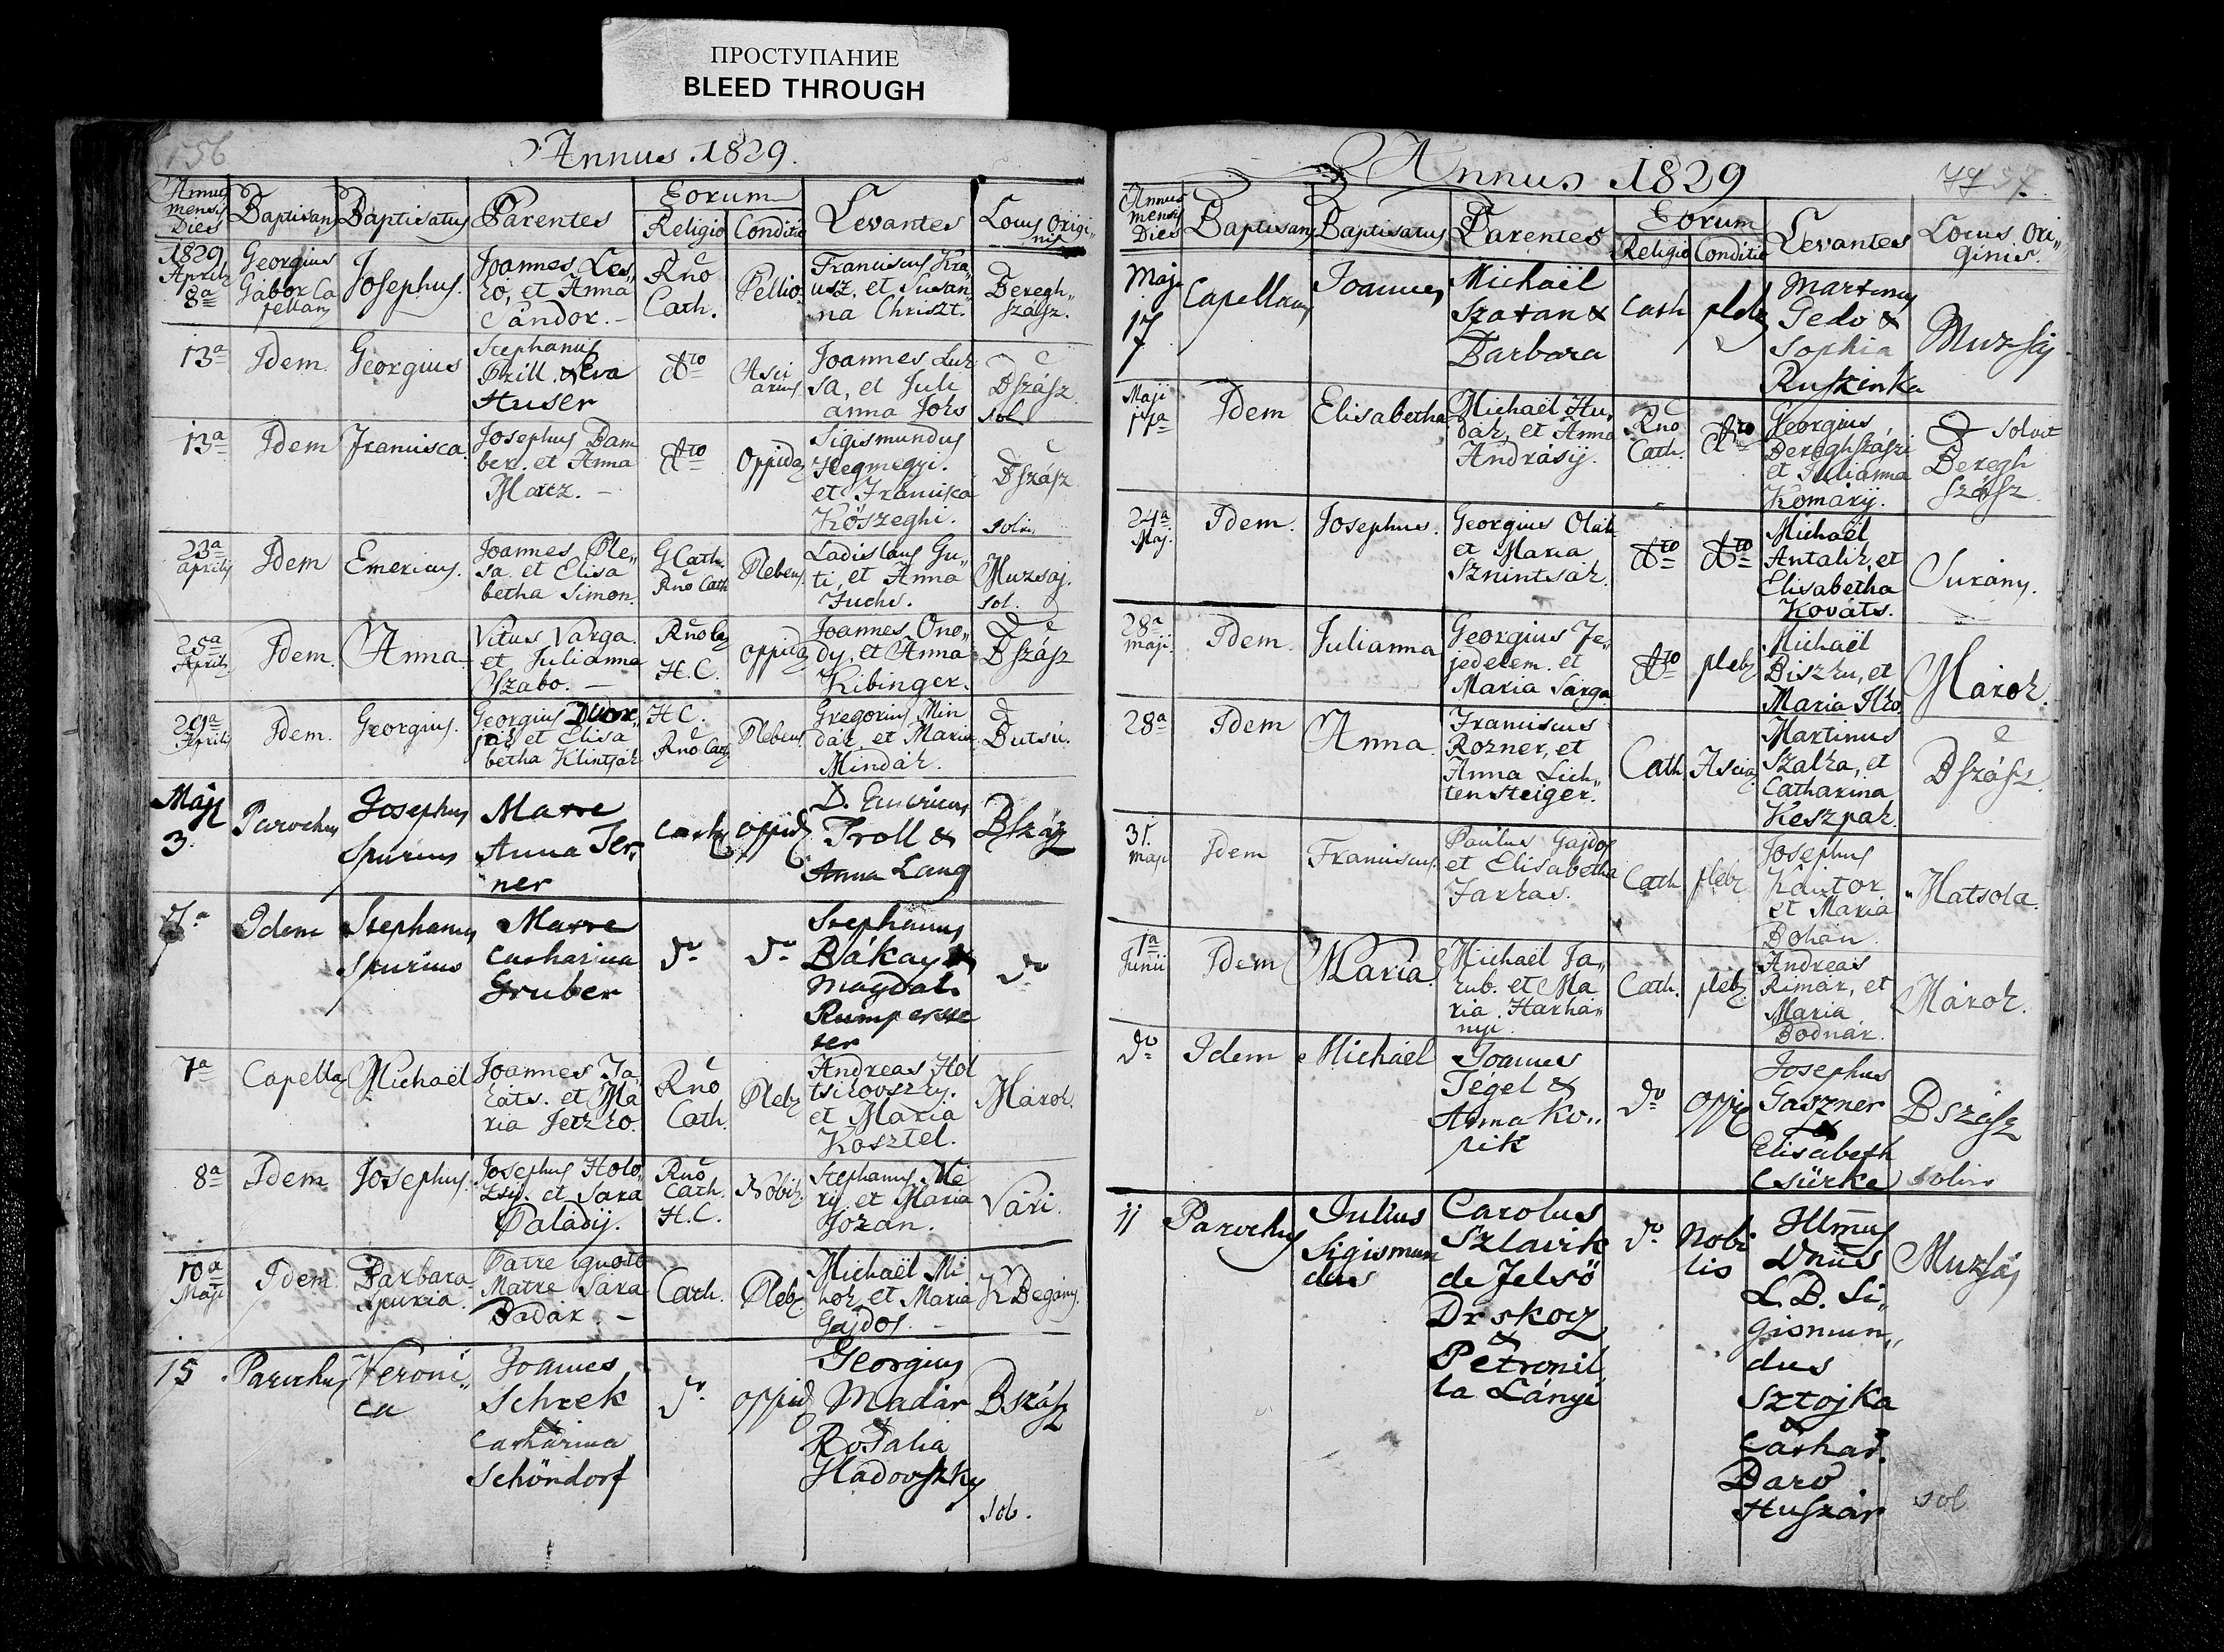 ПРОСТУПАНИЕ
BLEED THROUGH
156
Annus 1829.
Annus mensis Dies
Baptisans
Baptisatus
Parentes
Eorum
Religio
Conditio
Levantes
Locus Origi„
nis
1829
Aprilis
8a
Georgius
Gabor Ca
pellany
Josephus.
Joannes Les„
ko, et Anna
Sándor.
Rno
Cath.
Pellio.
Franciscus Kra„
usz, et Susan„
na Christ.
Beregh„
szász.
13a
Idem
Georgius
Stephanus
Brill. & Eva
Huser
dto
Asci
arius
Joannes Lux
sa, et Juli
anna Jobs
Bszász
sol
13a
Idem
Francisca.
Josephus Dam
ber. et Anna
Marcz. –
dto
Oppida
Sigismundus
Hegmegyi.
et Francisca
Kőszeghi.
Bszász
solv.
23a
Aprilis
Idem
Emericus.
Joannes Ple„
sa. et Elisa
betha Simon.
G Cath.
Rno Cath
Plebeus.
Ladislaus Gu„
ti, et Anna
Fuchs.
Muzsaj.
sol.
25a
Aprilis
Idem.
Anna
Vitus Varga.
et Julianna
Szabo. –
Rno Ca
H.C.
oppida
Joannes Ono„
dy, et Anna
Kibinger.
Bszász
29a
Aprilis
Idem.
Georgius.
Georgius
et Elisa
betha Klintsár
H C.
Rno Cath
Plebeus.
Gregorius Min
dák, et Maria
Mindák.
Butsú.
Maji
3.
Parochus
Josephus
Spurius
Matre
Anna Fer„
ner
Cath
oppid
D. Emericus
Troll &
Anna Lang
Bszász
7a
Idem
Stephanus
Spurius
Matre
Catharina
Gruber
do
do
Stephanus
Bákay &
Magdal.
do
7a
Capella
Michaël
Joannes Ta„
káts. et Ma
ria Jetzko.
Rno
Cath.
Pleb
Andreas Hol
tsikovszky.
et Maria
Kosztel.
Marok.
8a
Idem
Josephus.
Josephus Holo„
tsy. et Sara
Paládÿ.
Rno
Cath.
H.C.
Nobis.
Stephanus Me
ry, et Maria
Jozan.
Vári.
10a
Maji
Idem
Barbara
Spuria.
Patre ignoto
Matre Sara
Badar. –
Cath.
Pleb
Michaël Mi
hok, et Maria
Gajdos. –
K Begány.
15
Parochus
Veroni„
ca
Joannes
Schrek
&
Catharina
Schöndorf
do
oppid
Georgius
Madár
&
Rosalia
Hladovszky
Bszász
sol.
Annus 1829
Annus mensis Dies
Baptisans
Baptisatus
Parentes
Eorum
Religio
Conditio
Levantes
Locus Ori„
ginis.
Maji
17
Capellanus
Joannes
Michaël
Szatan &
Barbara
Cath
pleb
Martinus
Gedo &
Sophia
Ruszinka
Muzsaj
Maji
17a
Idem
Elisabetha
Michaël Hu„
dák, et Anna
Andrásÿ.
Rno
Cath.
dto
Georgius
Bereghszászi
et Julianna
Komárÿ.
solvit
Beregh
szász
24a
Maj.
Idem.
Josephus.
Georgius Oláh
et Maria
Sznintsák.
dto
dto
Michaël
Antalik, et
Elisabetha
Kováts.
Surány.
28a
maji.
Idem
Julianna
Georgius Fe„
jedelem. et
Maria Sarga
dto
pleb
Michaël
Biszku, et
Maria Ilko
Marok.
28a
Idem
Anna
Franciscus
Rozner, et
Anna Lich„
tensteiger.
Cath.
Ascia
Martinus
Szalka, et
Catharina
Keszpak.
Bszász.
31.
maji
Idem
Franciscus.
Paulus Gajdos
et Elisabetha
Farkas.
Cath
pleb
Josephus
Kántor
et Maria
Bohán.
Matsola.
1a
Junii
Idem
Maria.
Michaël Ja„
kub. et Ma
ria Harha„
nyi.
Cath.
pleb
Andreas
Rimár, et
Maria
Bodnár.
Márok.
do
Idem
Michäel
Joannes
Tegel &
Anna Ko„
pik
do
oppid
Josephus
Gaszner
&
Elisabeth
Csürke
Bszász
solvit
11
Parochus
Julius
Sigismun
dus
Carolus
Szlavik
de Jelsö
Drskocz
&
Petronil
la Lányi
do
Nobi
lis
Illmus
Dnus
L.B. Si„
gismun„
dus
Sztojka
&
Cathar.
Baro
Huszár
Muzsaj
sol